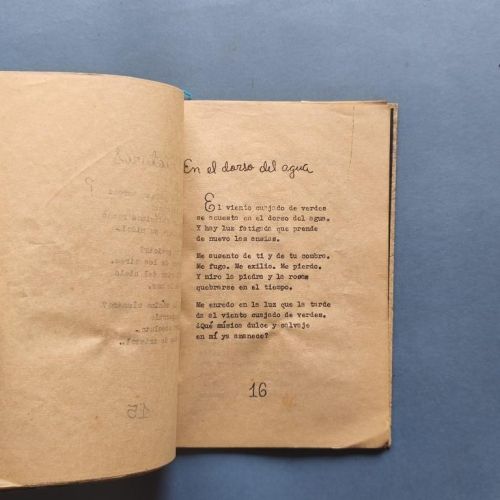 En el dorso del agua
El viento cuajado de verdes
se acuesta en el dorso del agua.
Y hay luz fatigada que prende
de nuevo las ansias.
Me ausento de ti y de tu combra.
Me fugo. Me exilio. Me pierdo.
Y miro la piedra y la rosa
quebrarse en el tiempo.
Me enredo en la luz que la tarde
da al viento cuajado de verdes.
¿Qué música dulce y salvaje
en mí ya amanece?
16
15